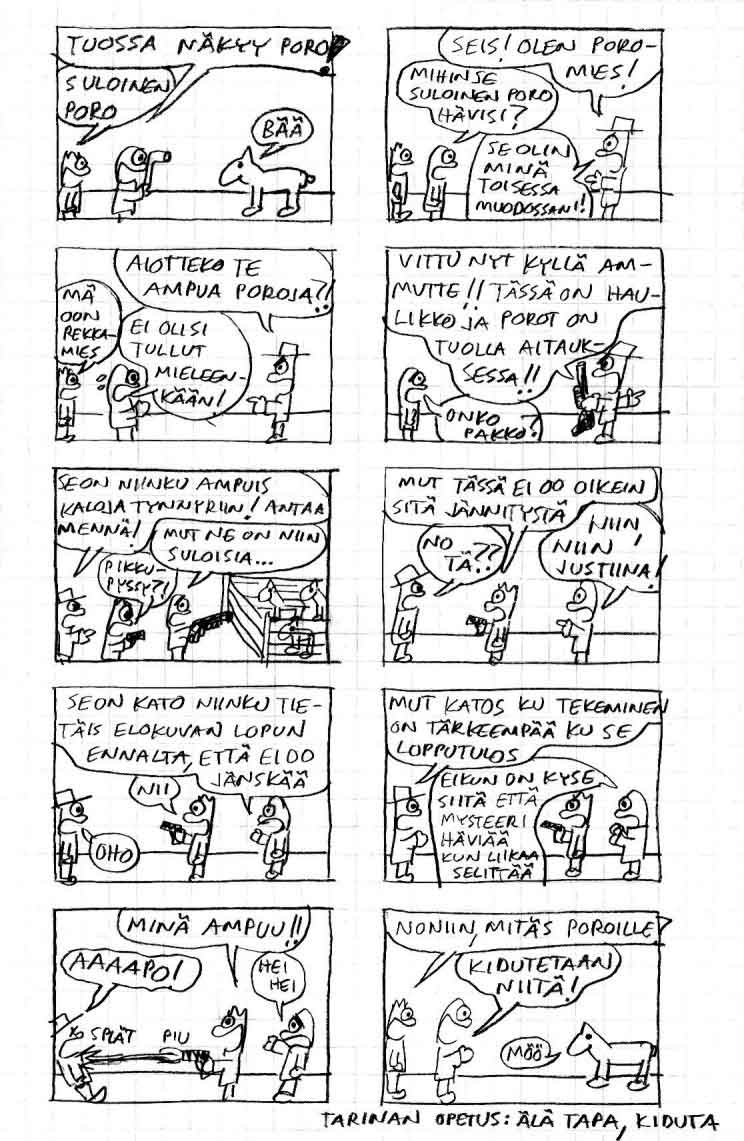 TUOSSA NÄKYY PORO!
SULOINEN
PORO
BÄÄ
SEIS! OLEN PORO-
MIES!
MIHIN SE
SULOINEN PORO
HÄVISI?
SE OLIN
MINÄ
TOISESSA
MUODOSSANI!
AIOTTEKO TE
AMPUA POROJA?!
MÄ
OON
REKKA-
MIES
EI OLISI
TULLUT
MIELEEN-
KÄÄN!
VITTU NYT KYLLÄ AM-
MUTTE!! TÄSSÄ ON HAU-
LIKKO JA POROT ON
TUOLLA AITAUK-
SESSA!!
ONKO
PAKKO?
SE ON NIINKU AMPUIS
KALOJA TYNNYRIIN! ANTAA
MENNÄ!
MUT NE ON NIIN
SULOISIA...
PIKKU-
PYSSY?!
MUT TÄSSÄ EI OO OIKEIN
SITÄ JÄNNITYSTÄ
NO
TÄ??
NIIN,
NIIN
JUSTIINA!
SE ON KATO NIINKU TIE-
TÄIS ELOKUVAN LOPUN
ENNALTA, ETTÄ EI OO
JÄNSKÄÄ
NII
OHO
MUT KATOS KU TEKEMINEN
ON TÄRKEEMPÄÄ KU SE
LOPPUTULOS
EIKUN ON KYSE
SIITÄ ETTÄ
MYSTEERI
HÄVIÄÄ
KUN LIIKAA
SELITTÄÄ
MINÄ AMPUU!!
AAAAPO!
HEI
HEI
SPLÄT
PIU
NONIIN, MITÄS POROILLE?
KIDUTETAAN
NIITÄ!
MÖÖ
TARINAN OPETUS: ÄLÄ TAPA, KIDUTA